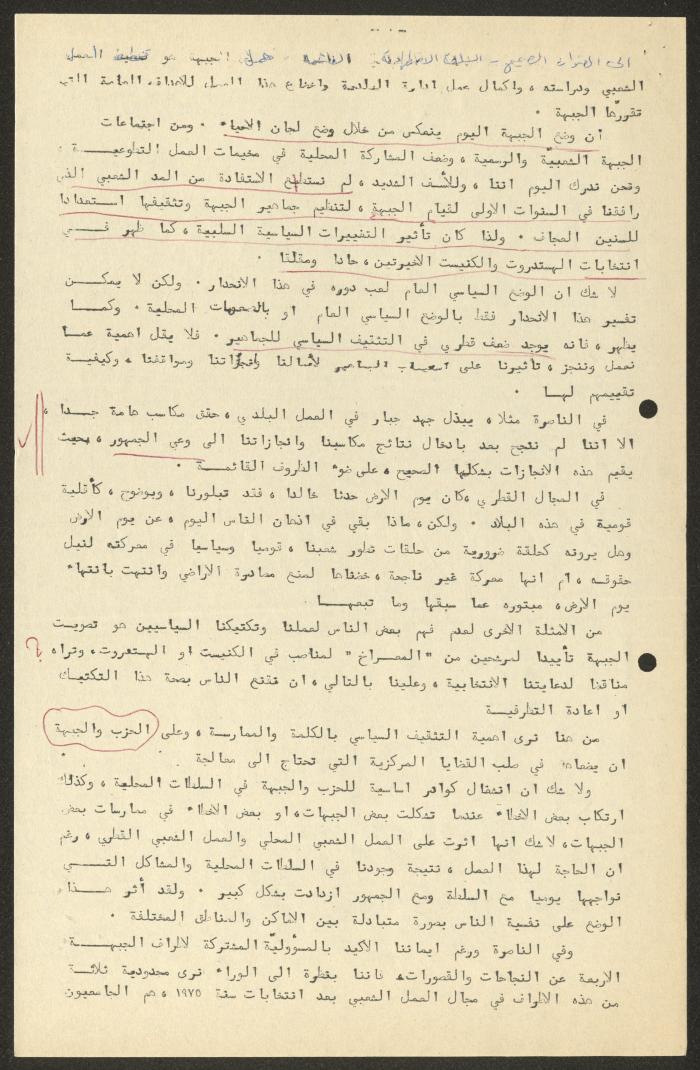 الى العنوان الصحيح - السلطة الاضطهادية الغاشمة . الجبهة هو العمل
الشعبي ودراسته ، واكمال عمل ادارة البلدية واخضاع هذا العمل للاهداف العامة التي
تقورها الجبهة .
ان وضع الجبهة اليوم ينعكس من خلال وضع لجان الاحياء . ومن اجتماعات
الجبهة الشعبيّة والرسمية ، وضعف المشاركة المحلية في مخيمات العمل التطوعيـــة .
ونحن ندرك اليوم اننا ، وللأسف الشديد ، لم نستطع الاستفادة من المد الشعبي الذي
رافقنا في السنوات الاولى لقيام الجبهة ، لتنظيم جماهير الجبهة وتثقيفها استعدادا
للسنين العجاف . ولذا كان تأثير التغييرات السياسية السلبية ، كما ظهر فـــي
انتخابات الهستدروت والكنيست الاخيرتين ، حادا ومقلقا .
لا شك ان الوضع السياسي العام لعب دوره في هذا الانحدار . ولكن لا يمكـــن
تفسير هذا الانحدار فقط بالوضع السياسي العام او بالصعوبات المحلية . وكمـــا
يظهر ، فانه يوجد ضعف قطري في التثقيف السياسي للجماهير . فلا يقل اهمية عمـا
نعمل وننجز ، تأثيرنا على الجماهير لأعمالنا وانجازاتنا ومواقفنا ، وكيفيـة
تقييمهم لهـا .
في الناصرة مثلا ، يبذل جهد جبار في العمل البلدي ، حقق مكاسب هامة جـــدا ،
الا اننا لم ننجح بعد بادخال نتائج مكاسبنا وانجازاتنا الى وعي الجمهور ، بحيث
يقيم هذه الانجازات بشكلها الصحيح ، على ضوء الظروف القائمـــة .
في المجال القطري ، كان يوم الارض حدثا خالدا ، فقد تبلورنا ، وبوضوح ، كأقلية
قومية في هذه البلاد . ولكن ، ماذا بقي في اذهان الناس اليوم ، عن يوم الارض
وهل يرونه كحلقة ضرورية من حلقات تطور شعبنا ، قوميا وسياسيا في معركته لنيل
حقوقه ، ام انها معركة غير ناجحة ، خضناها لمنع مصادرة الاراضي وانتهت بانتهاء
يوم الارض ، مبتوره عما سبقها وما تبعهـــا
من الامثلة الاخرى لعدم فهم بعض الناس لعملنا وتكتيكنا السياسيين هو تصويـت
الجبهة تأييدا لمرشحين من "المعـــراخ " لمناصب في الكنيست او الهستدروت ، وتراه
مناقضا لدعايتنا الانتخابية ، وعلينا بالتالي ، ان نقنع الناس بصحة هذا التكتيـك
او اعادة النظرفيـــه
من هنا نرى اهمية التثقيف السياسي بالكلمة والممارســة ، وعلى الحزب والجبهة
ان يضعاها في صلب القضايا المركزية التي تحتاج الى معالجة .
ولا شك ان انشغال كوادر اساسية للحزب والجبهة في السلطات المحلية ، وكذلك
ارتكاب بعض الاخطاء عندما تشكلت بعض الجبهات ، او بعض الاخطاء في ممارسات بعض
الجبهات ، لاشك انها اثرت على العمل الشعبي المحلي والعمل الشعبي القطري ، رغم
ان الحاجة لهذا العمل ، نتيجة وجودنا في السلطات المحلية والمشاكل التـــي
نواجهها يوميا مع السلطة ومع الجمهور ازدادت بشكل كبير . ولقد أثر هـــذا
الوضع على نفسية الناس بصورة متبادلة بين الاماكن والمناطق المختلفة .
وفي الناصرة ورغم ايماننا الاكيد بالمسؤوليّة المشتركة لاطراف الجبهـــة
الاربعة عن النجاحات والقصورات ، فاننا بنظرة الى الوراء نرى محدودية ثلاثـة
من هذه الاطراف في مجال العمل الشعبي بعد انتخابات سنة ١٩٧٥ ، هم الجامعيون